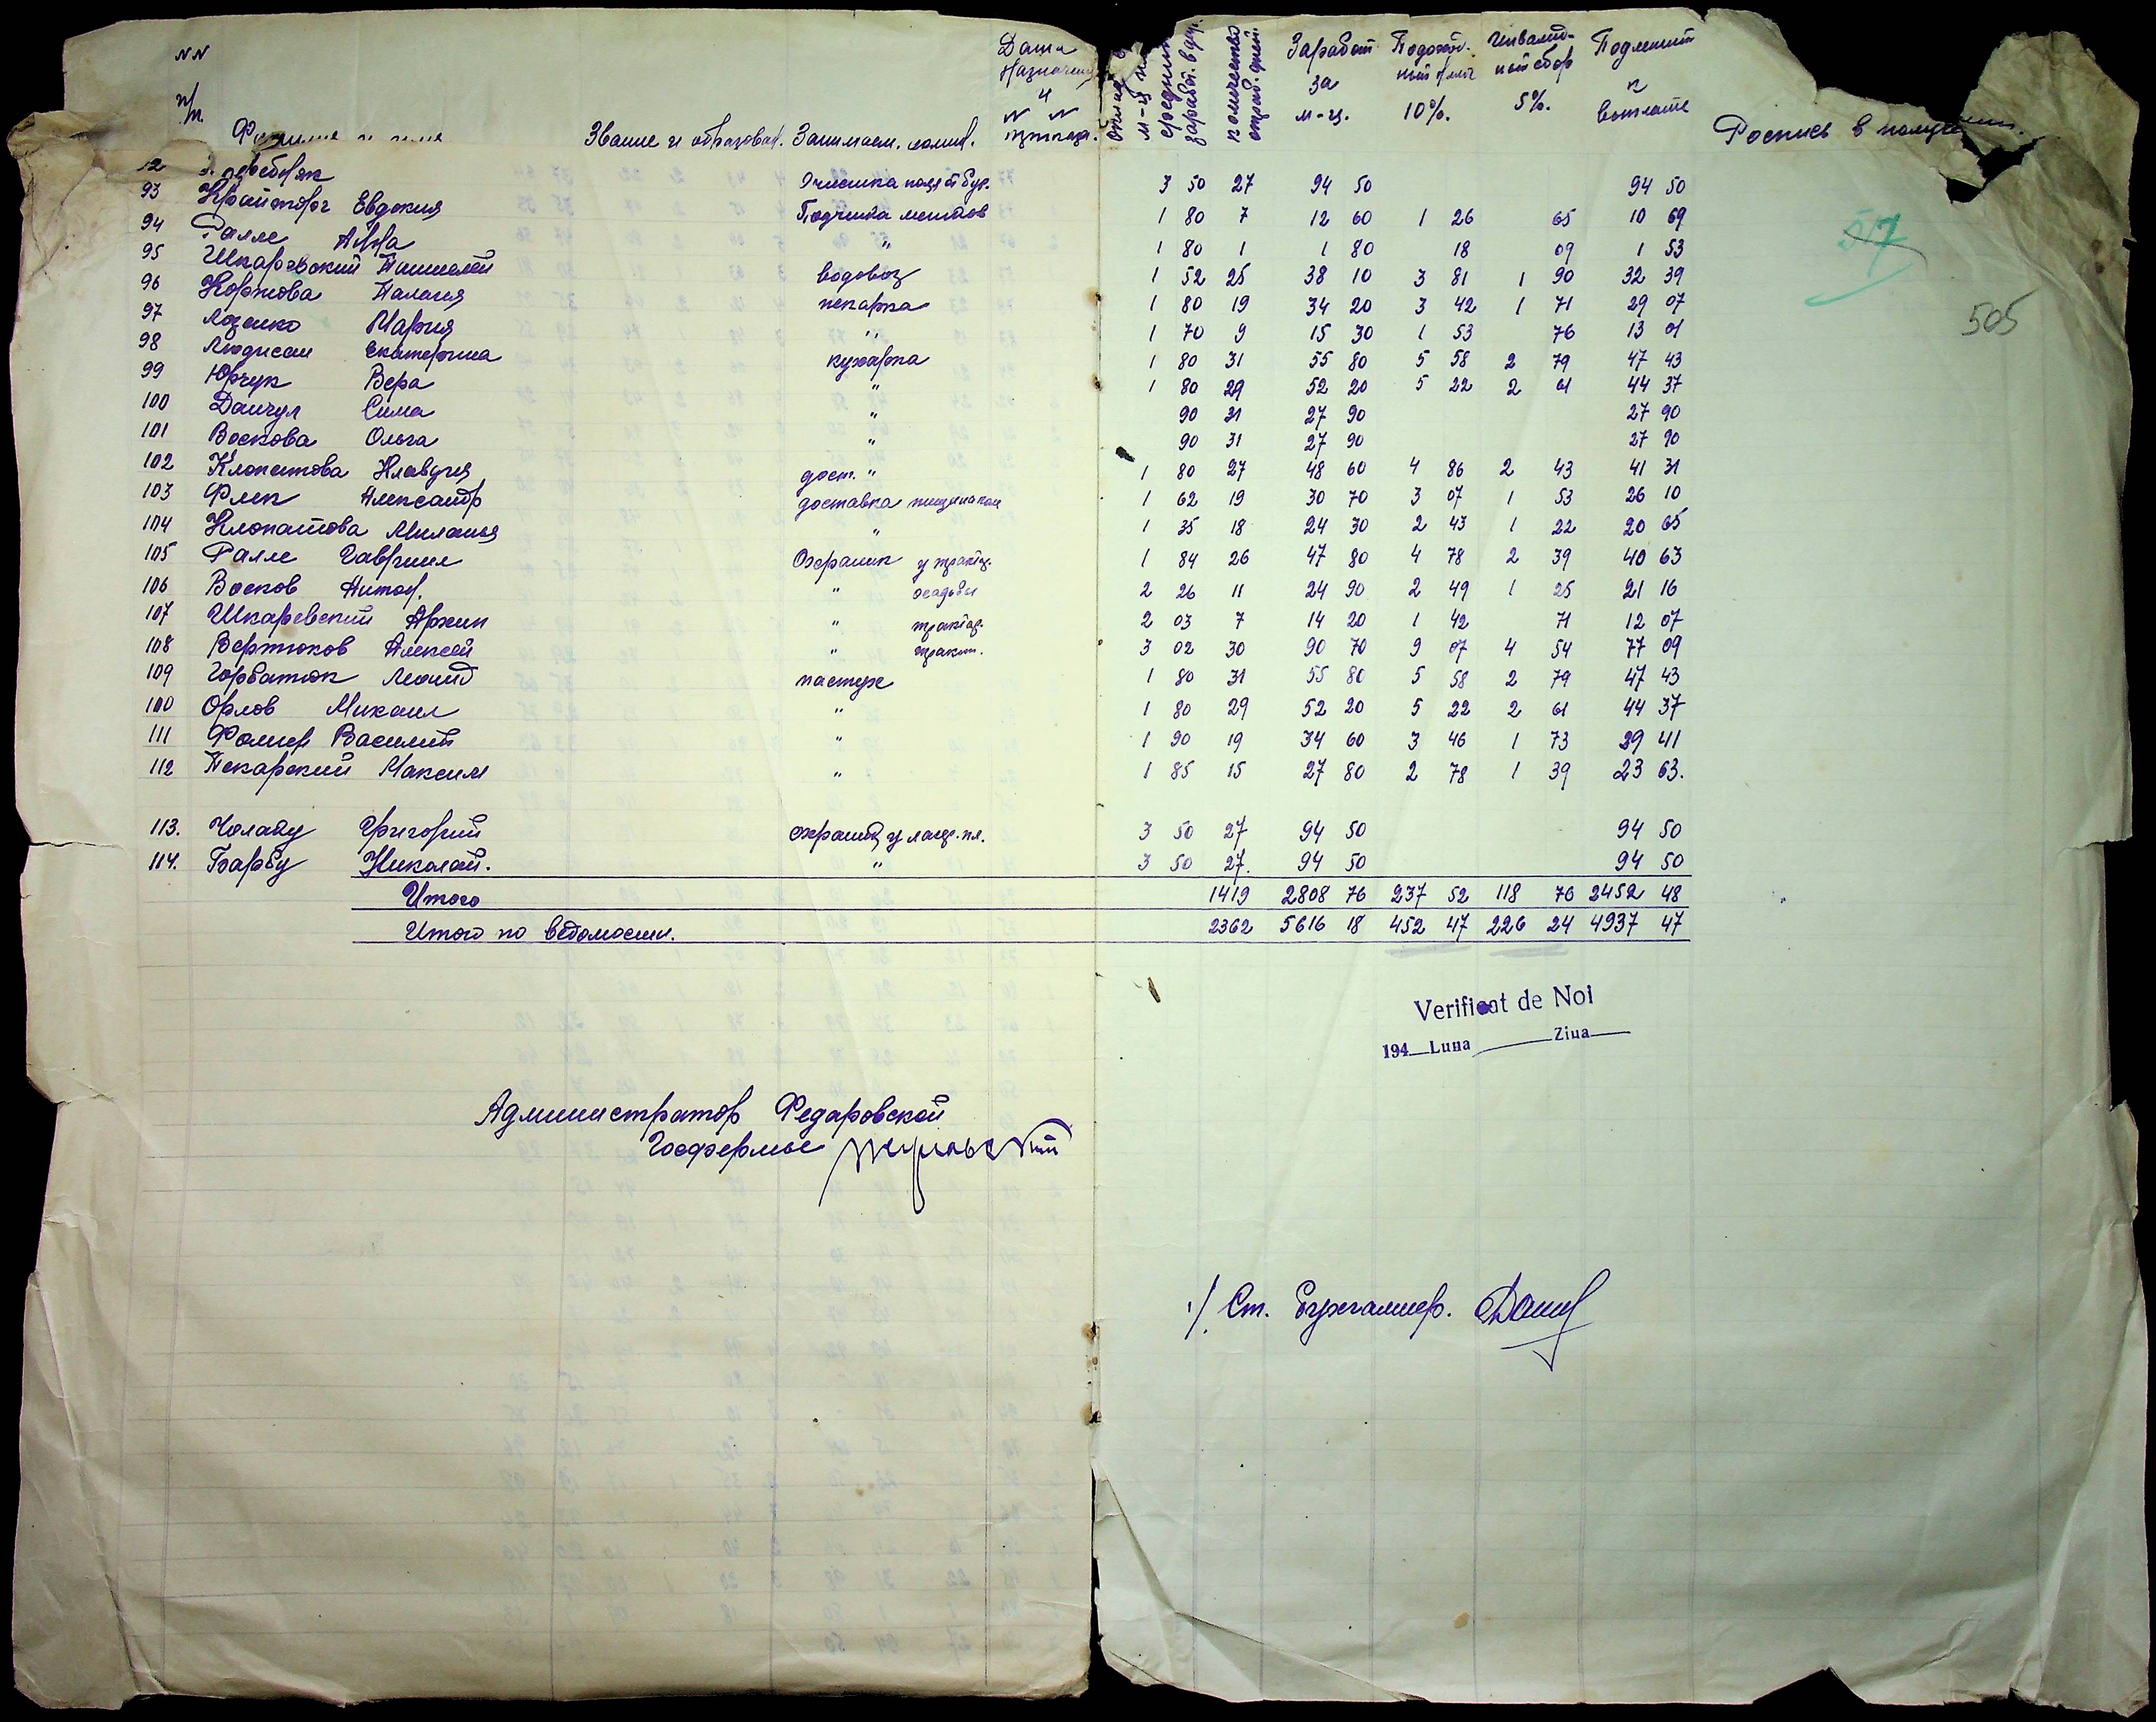 NN п/п. Фамилия и имя Звание и образован. Занимаем. должн. Дата назначения и NN приказа. средний заработ. в день количество отраб. дней. Заработ за м-ц. Подоход-ный налог 10%. Инвалид-ный сбор 5%. Подлежит к выплате Роспись в получен.
Очистка поля от бур. 3 50 27 94 50 94 50
93 Евдокия Подчистка мешков 1 80 7 12 60 1 26 65 10 69
94 Ралле Анна " 1 80 1 1 80 18 09 1 53
517
95 Шкаревский Пантелей водовоз 1 52 25 38 10 3 81 1 90 32 39
96 Коржова Палагея пекарка 1 80 19 34 20 3 42 1 71 29 07
505
97 Лозенко Мария " 1 70 9 15 30 1 53 76 13 01
98 Екатерина кухарка 1 80 31 55 80 5 58 2 79 47 43
99 Юрчук Вера " 1 80 29 52 20 5 22 2 61 44 37
100 Данчул Сима " 90 31 27 90 27 90
101 Воскова Ольга " 90 31 27 90 27 90
102 Клопатова Клавдия дост. " 1 80 27 48 60 4 86 2 43 41 31
103 Флек Александр доставка 1 62 19 30 70 3 07 1 53 26 10
104 Клопатова Миланья " 1 35 18 24 30 2 43 1 22 20 65
105 Ралле Гавриил Охраник у трактор. 1 84 26 47 80 4 78 2 39 40 63
106 Восков Антон. " усадьбы 2 26 11 24 90 2 49 1 25 21 16
107 Шкаревский Архип " трактор. 2 03 7 14 20 1 42 71 12 07
108 Вертюков Алексей " тракт. 3 02 30 90 70 9 07 4 54 77 09
109 Горбатюк Леонид пастух 1 80 31 55 80 5 58 2 79 47 43
100 Орлов Микаил " 1 80 29 52 20 5 22 2 61 44 37
111 Фомер Василий " 1 90 19 34 60 3 46 1 73 29 41
112 Пекарский Максим " 1 85 15 27 80 2 78 1 39 23 63.
113. Чолаку Григорий 3 50 27 94 50 94 50
114. Барбу Николай. " 3 50 27. 94 50 94 50
Итого 1419 2808 76 237 52 118 76 2452 48
Итого по ведомости. 2362 5616 18 452 47 226 24 4937 47
Verificat de Noi
194 Luna Ziua
Администратор Федаровской
Госфермы
Ст. Бухгалтер.